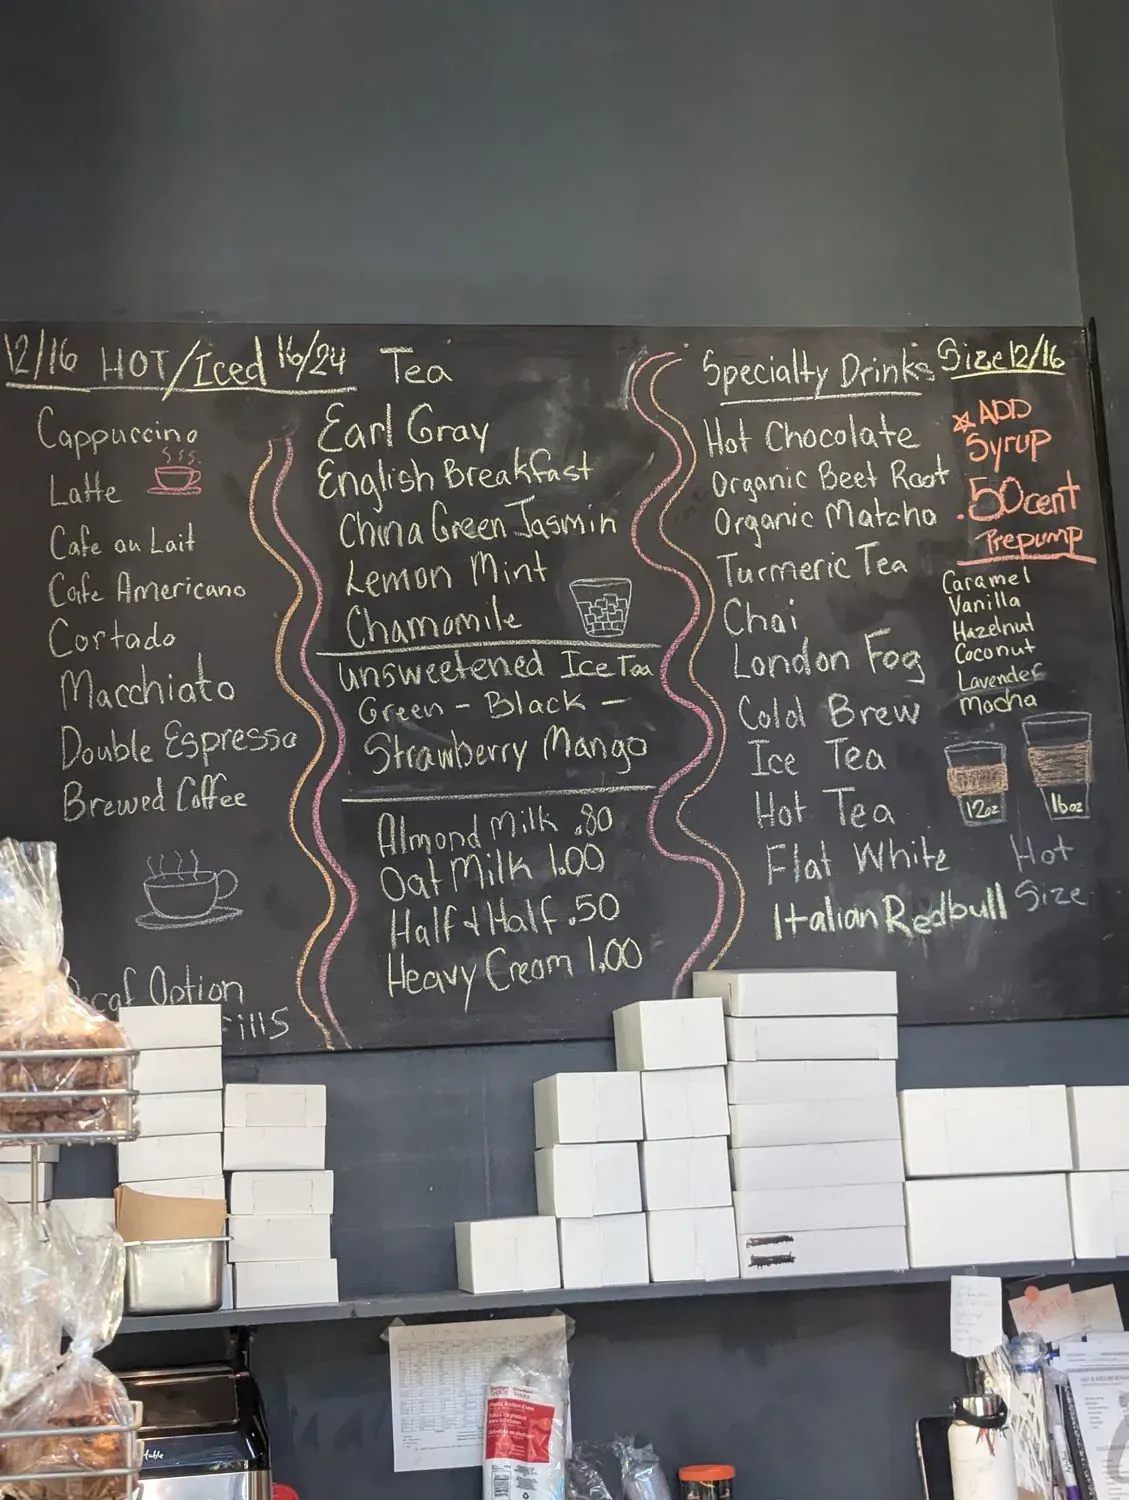 12/16 HOT/Iced 16/24
Cappuccino
Latte
Cafe au Lait
Cafe Americano
Cortado
Macchiato
Double Espresso
Brewed Coffee
Option
Tea
Earl Gray
English Breakfast
China Green Jasmin
Lemon Mint
Chamomile
Unsweetened Ice Tea
Green - Black -
Strawberry Mango
Almond Milk .80
Oat Milk 1.00
Half & Half .50
Heavy Cream 1.00
Specialty Drinks Size 12/16
Hot Chocolate
Organic Beet Root
Organic Matcha
Turmeric Tea
Chai
London Fog
Cold Brew
Ice Tea
Hot Tea
Flat White
Italian Redbull
ADD
Syrup
.50cent
Prepump
Caramel
Vanilla
Hazelnut
Coconut
Lavender
Mocha
12oz
16oz
Hot
Size